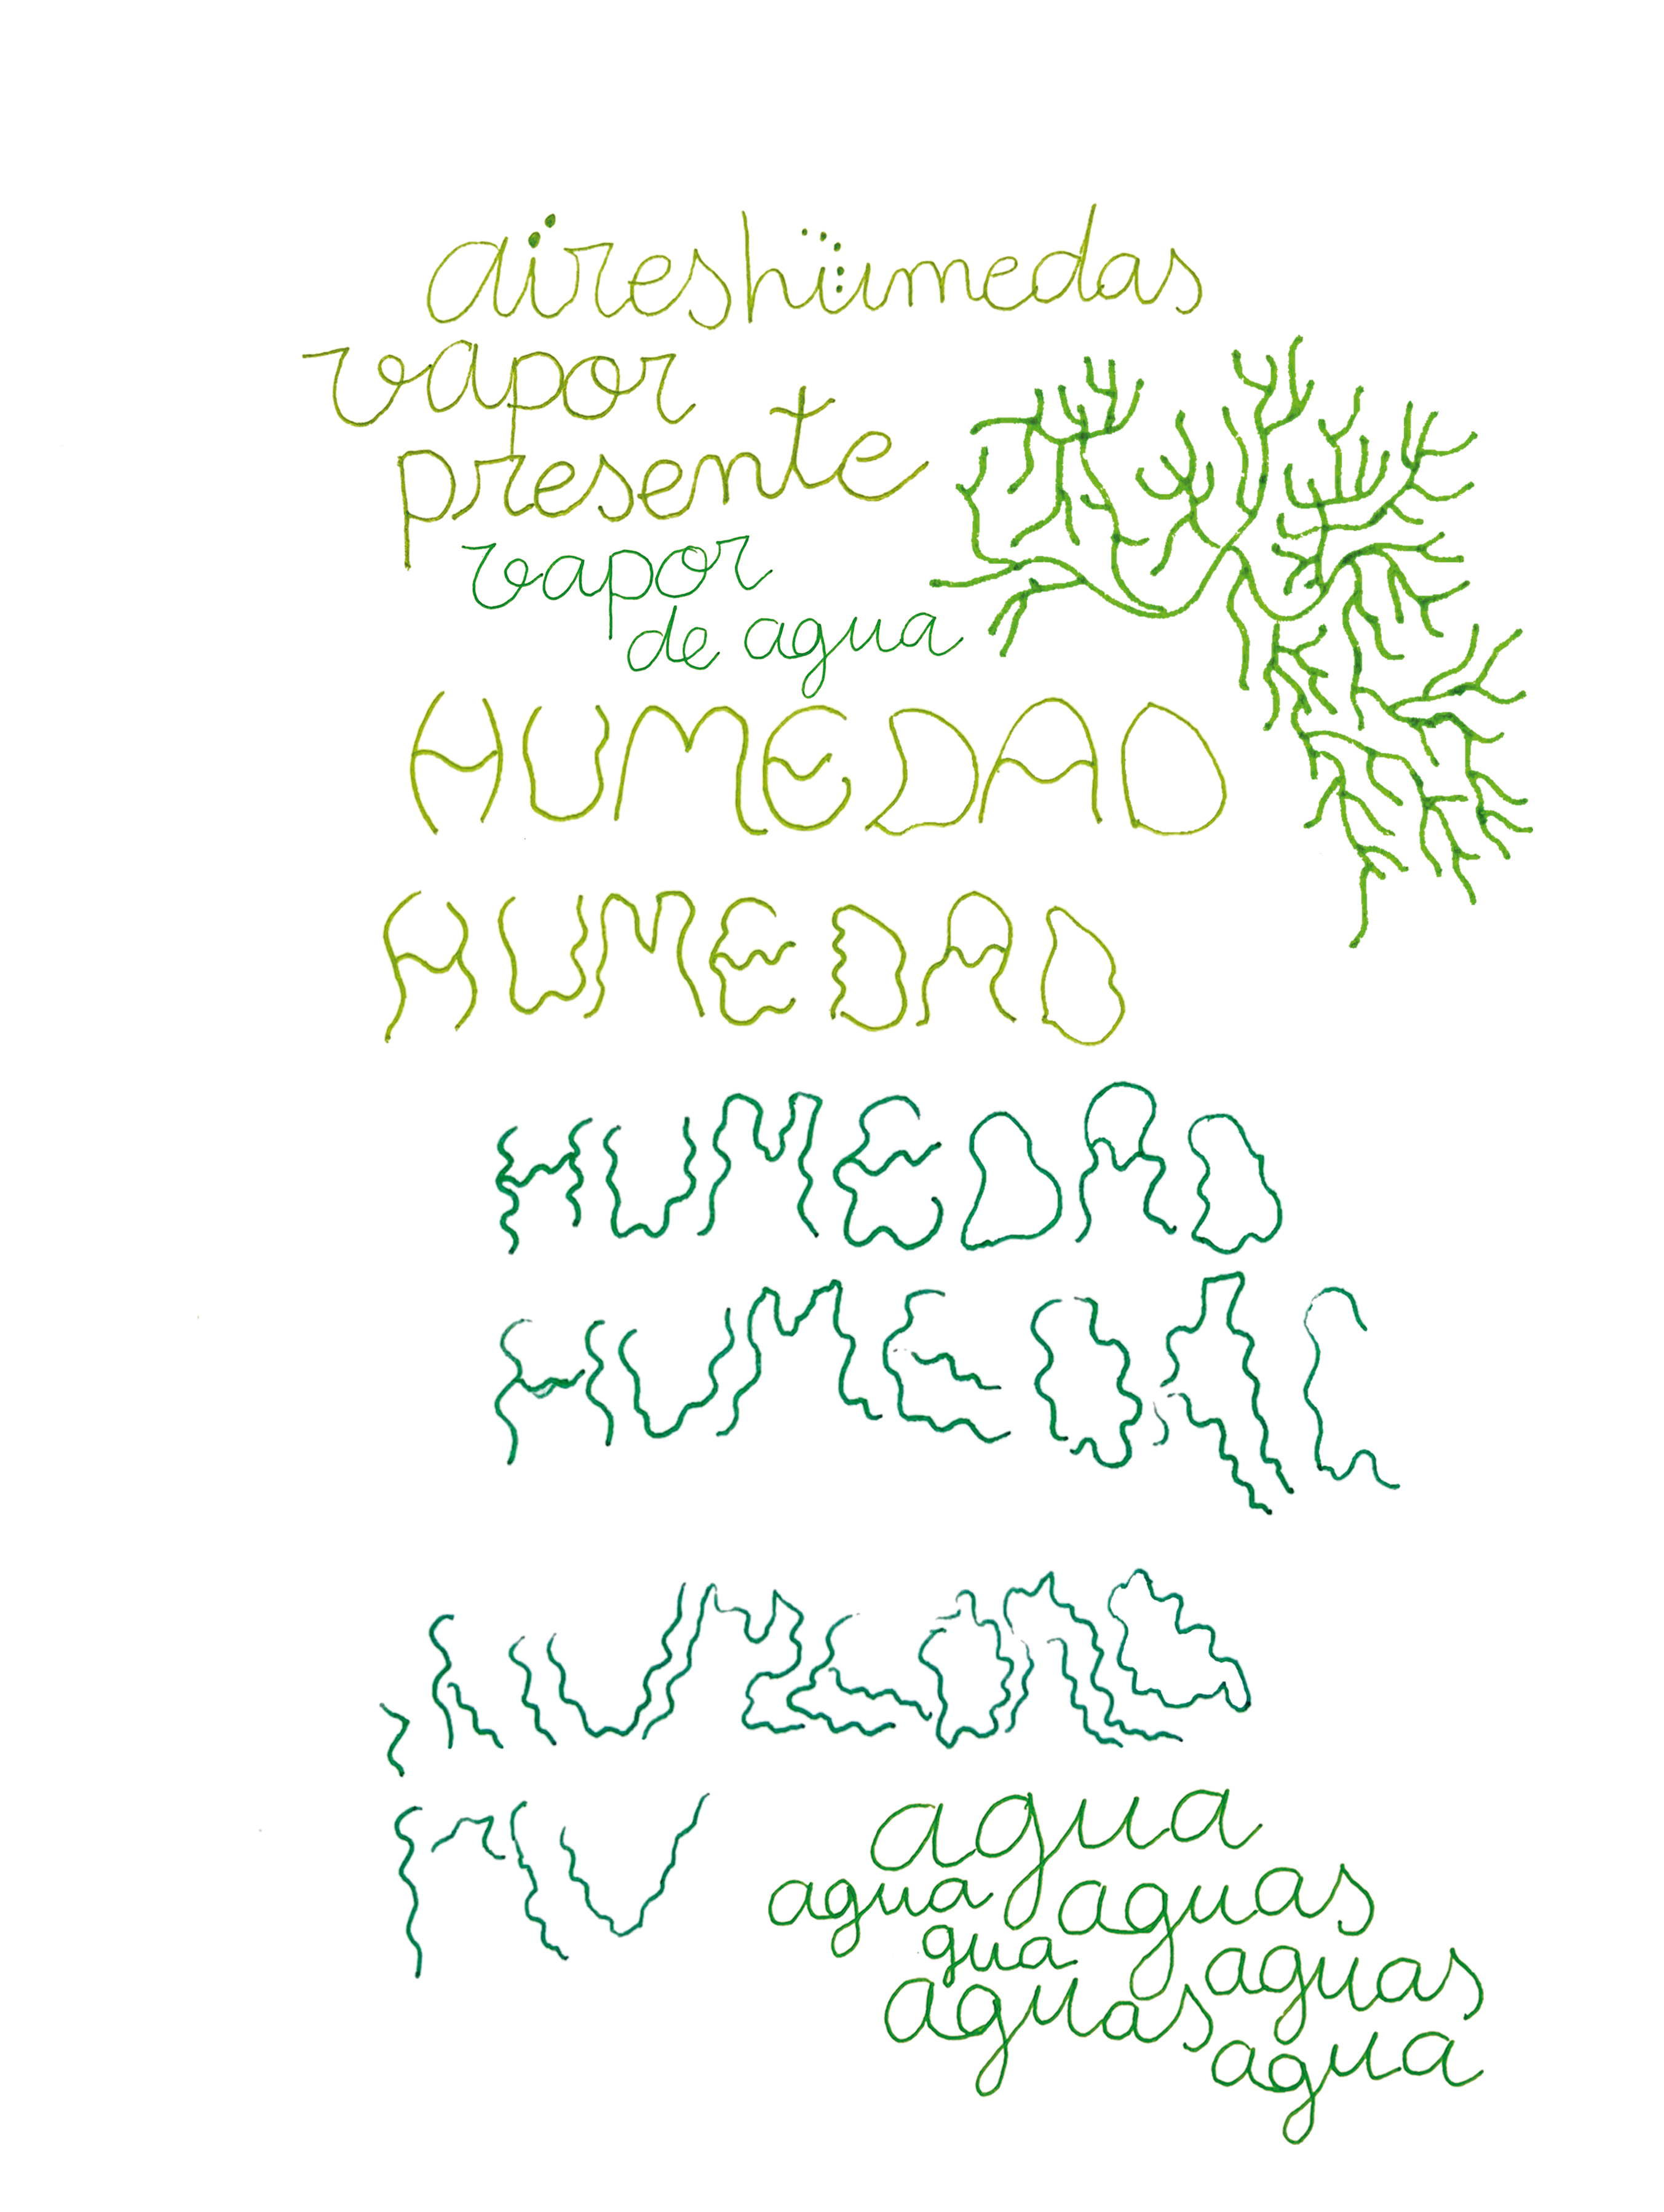 aïreshümedas
vapor
presente
vapor
de agua
HUMEDAD
HUMEDAD
HUMEDAD
HUMEDA
agua
agua aguas
gua
aguas
aguas
agua